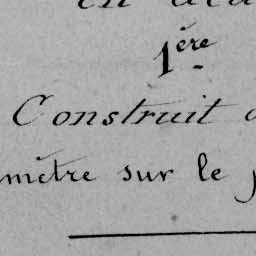 en
1ère
Construit
mètre sur le